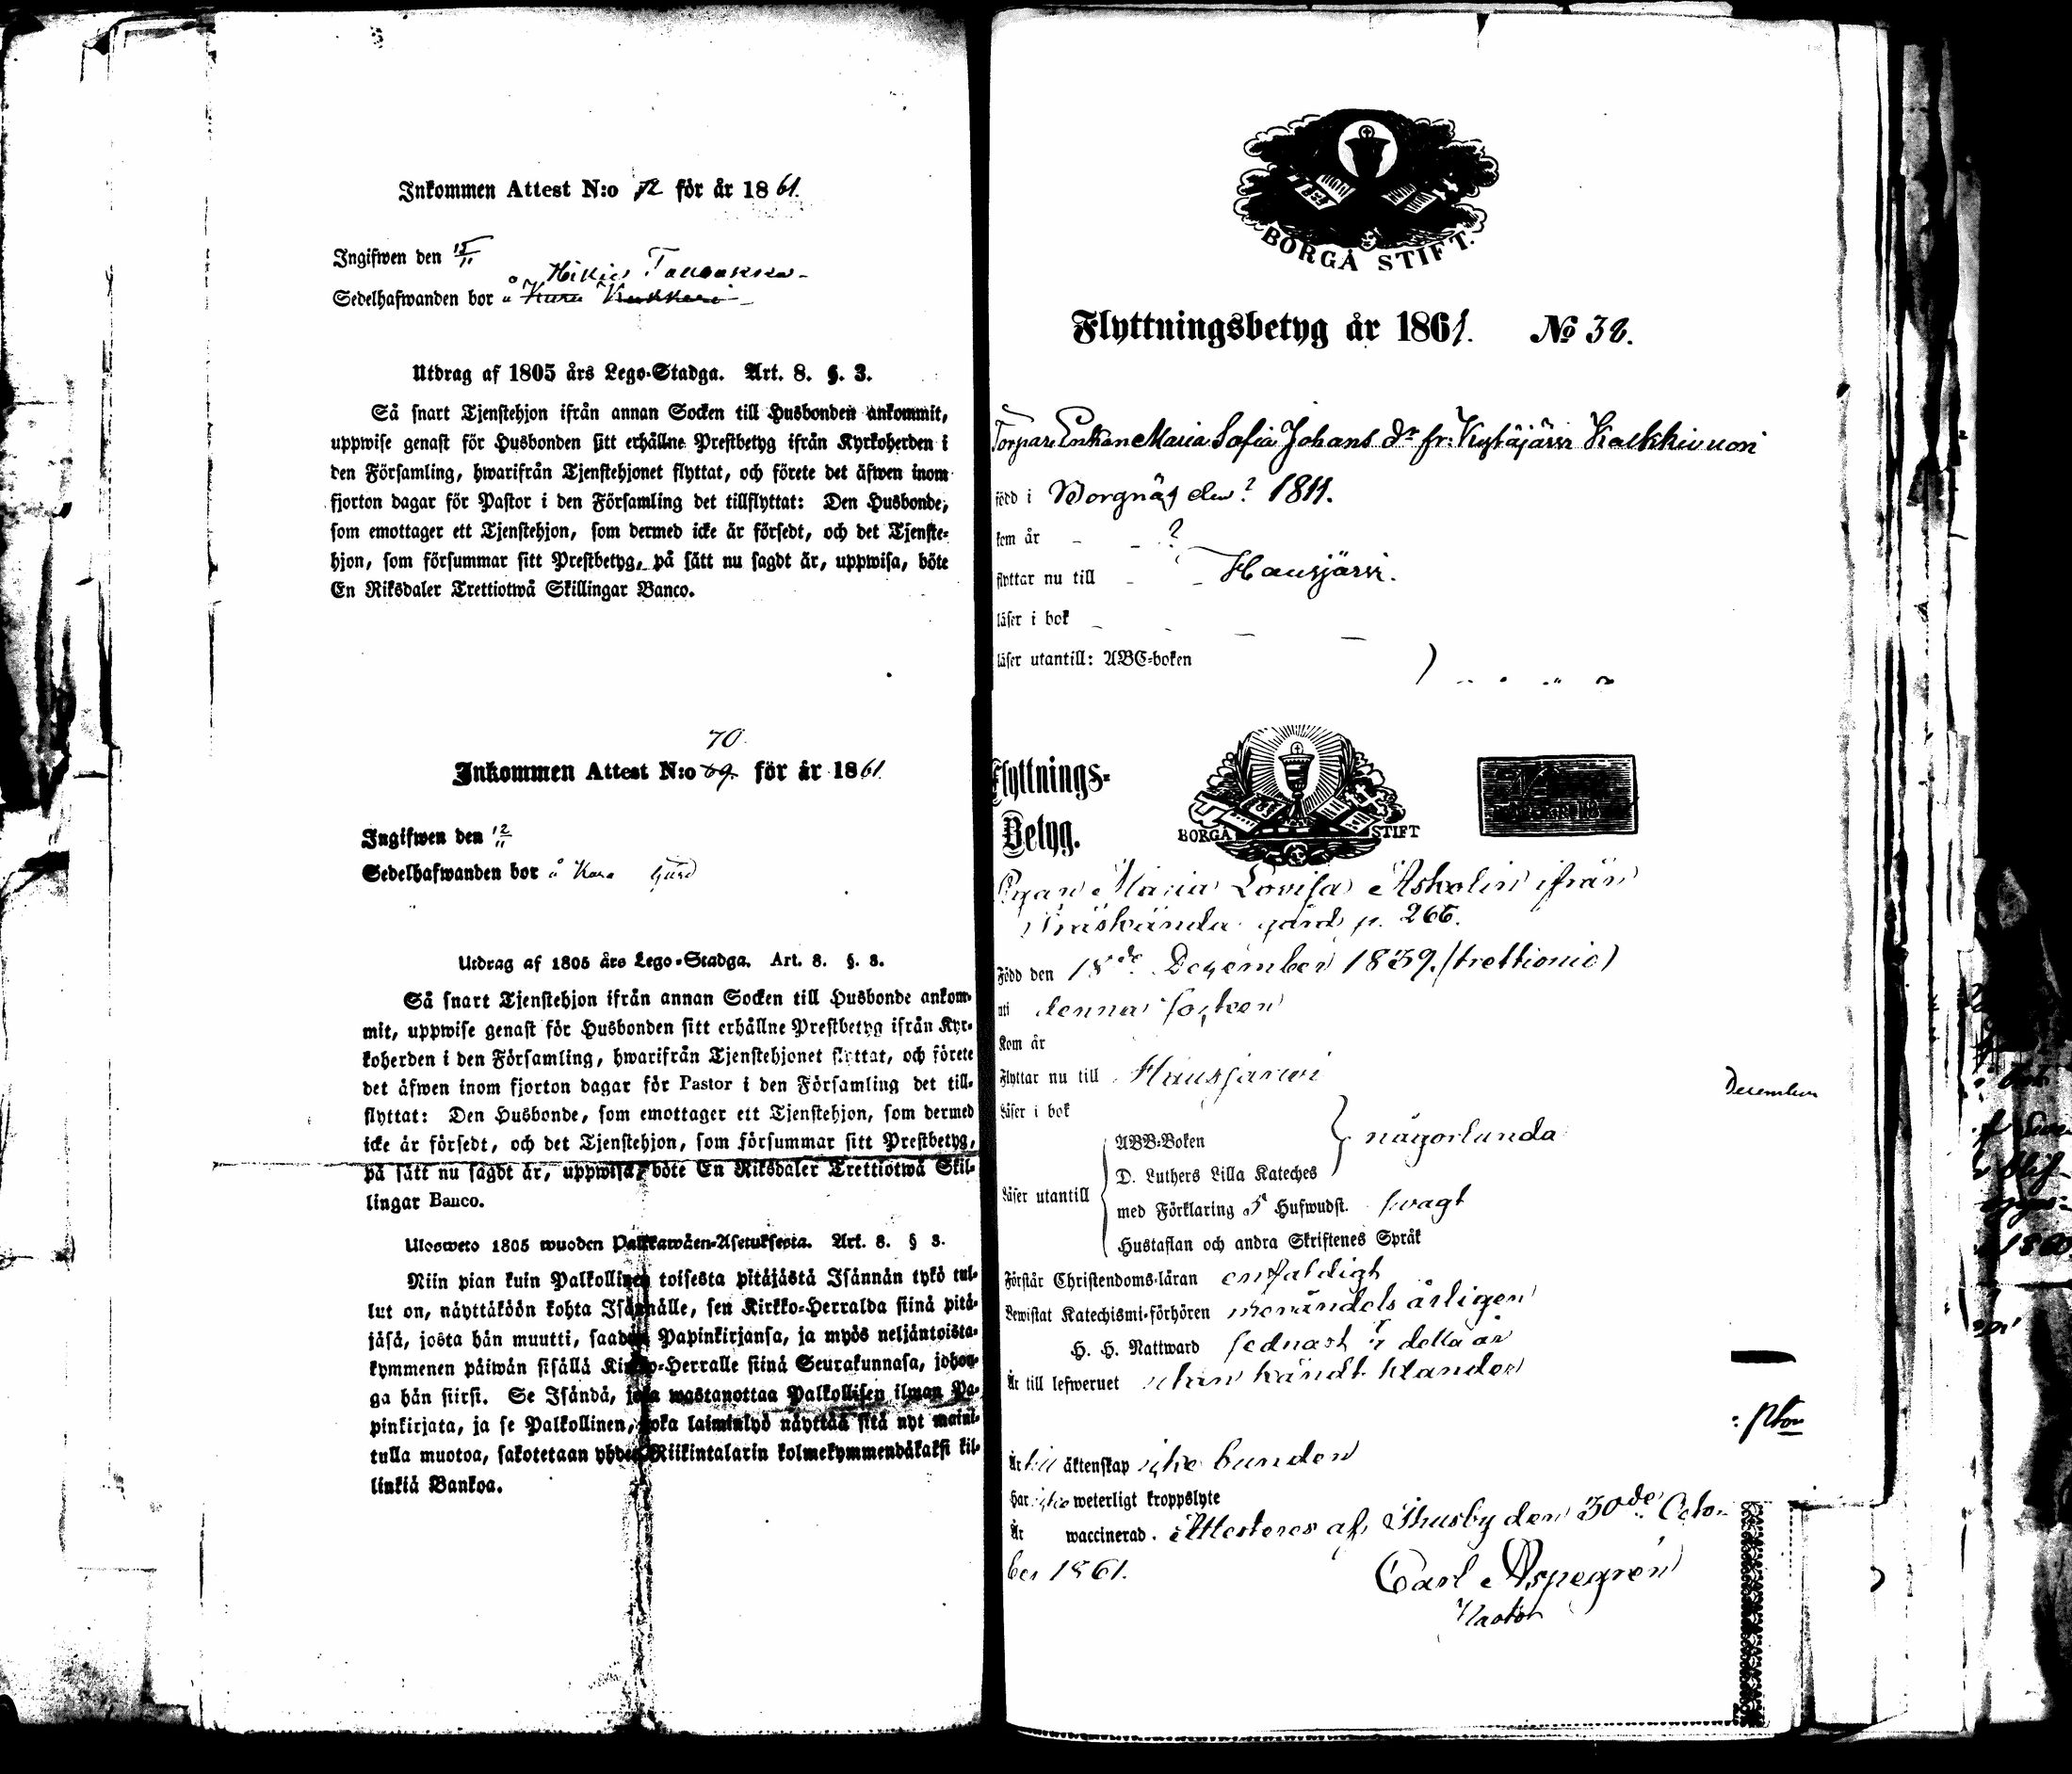 Inkommen Attest N:o 72 för år 1861.
Ingifwen den 15/11
Hikiä Tausakka
Sedelhafwanden bor å Kara
Utdrag af 1805 års Lego-Stadga. Art. 8. §. 3.
Så snart Tjenstehjon ifrån annan Socken till Husbonden ankommit,
uppwise genast för Husbonden sitt erhållne Prestbetyg ifrån Kyrkoherden i
den Församling, hwarifrån Tjenstehjonet flyttat, och förete det äfwen inom
fjorton dagar för Pastor i den Församling det tillflyttat: Den Husbonde,
som emottager ett Tjenstehjon, som dermed icke är försedt, och det Tjenste-
hjon, som försummar sitt Prestbetyg, på sätt nu sagdt är, uppwisa, böte
En Riksdaler Trettiotwå Skillingar Banco.
70
Inkommen Attest N:o 69. för år 1861
Ingifwen den 12/11
Sedelhafwanden bor å Kara Gård
Utdrag af 1805 års Lego-Stadga. Art. 8. §. 3.
Så snart Tjenstehjon ifrån annan Socken till Husbonde ankom-
mit, uppwise genast för Husbonden sitt erhållne Prestbetyg ifrån Kyr-
koherden i den Församling, hwarifrån Tjenstehjonet flyttat, och förete
det äfwen inom fjorton dagar för Pastor i den Församling det till-
flyttat: Den Husbonde, som emottager ett Tjenstehjon, som dermed
icke är försedt, och det Tjenstehjon, som försummar sitt Prestbetyg,
på sätt nu sagdt är, uppwisa, böte En Riksdaler Trettiotwå Skil-
lingar Banco.
Ulosweto 1805 wuoden Palkkawäen-Asetuksesta. Art. 8. § 3.
Niin pian kuin Palkollinen toisesta pitäjästä Isännän tykö tul-
lut on, näyttäköön kohta Isännälle, sen Kirkko-Herralda siinä pitä-
jäsä, josta hän muutti, saadun Papinkirjansa, ja myös neljäntoista-
kymmenen päiwän sisällä Kirkko-Herralle siinä Seurakunnasa, johon-
ga hän siirsi. Se Isändä, joka wastanottaa Palkollisen ilman Pa-
pinkirjata, ja se Palkollinen, joka laiminlyö näyttää sitä nyt maini-
tulla muotoa, sakotetaan yhden Riikintalarin kolmekymmendäkaksi kil-
linkiä Bankoa.
BORGÅ STIFT.
Flyttningsbetyg år 1861. No 38.
Torpare Enkan Maria Sofia Johans dr fr: Kytäjärvi Kalkkivuori
född i Borgnäs den ? 1811.
kom år ?
flyttar nu till Hausjärvi.
läser i bok
läser utantill: ABC-boken
Flyttnings-
Betyg.
BORGÅ STIFT
Pigan Maria Lovisa Askolin ifrån
Träskända gård p. 266.
Född den 18de December 1839. (trettionio)
uti denna socken
Kom år
Flyttar nu till Hausjärwi
Läser i bok
Läser utantill
ABB-Boken
någorlunda
D. Luthers Lilla Kateches
med Förklaring 5 Hufwudst. swagt
Hustaflan och andra Skriftenes Språk
Förstår Christendoms-läran enfaldigt
Bewistat Katechismi-förhören merändels årligen
H. H. Nattward sednast i detta år
Är till lefweruet utan kändt klander
Är till äktenskap icke bunden
har icke weterligt kroppslyte
Är waccinerad. Attesteras af Thusby den 30de Octo-
ber 1861.
Carl Aspegren
Pastor
December